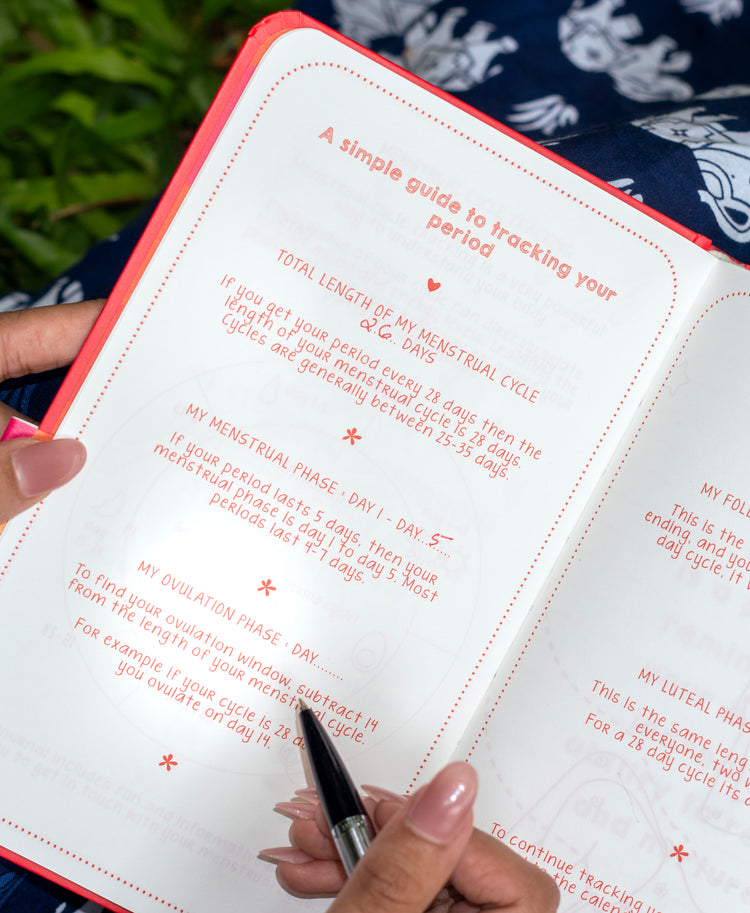 A simple guide to tracking your
period
TOTAL LENGTH OF MY MENSTRUAL CYCLE
26.. DAYS
If you get your period every 28 days then the
length of your menstrual cycle is 28 days.
Cycles are generally between 25-35 days.
MY MENSTRUAL PHASE : DAY 1 - DAY...5......
If your period lasts 5 days, then your
menstrual phase is day 1 to day 5. Most
periods last 4-7 days.
MY OVULATION PHASE : DAY.......
To find your ovulation window, subtract 14
from the length of your menstrual cycle.
For example if your cycle is 28
you ovulate on day 14.
MY
This is the
ending, and
day cycle, it
MY LUTEAL
This is the same
everyone, two
For a 28 day cycle its
To continue tracking
to the